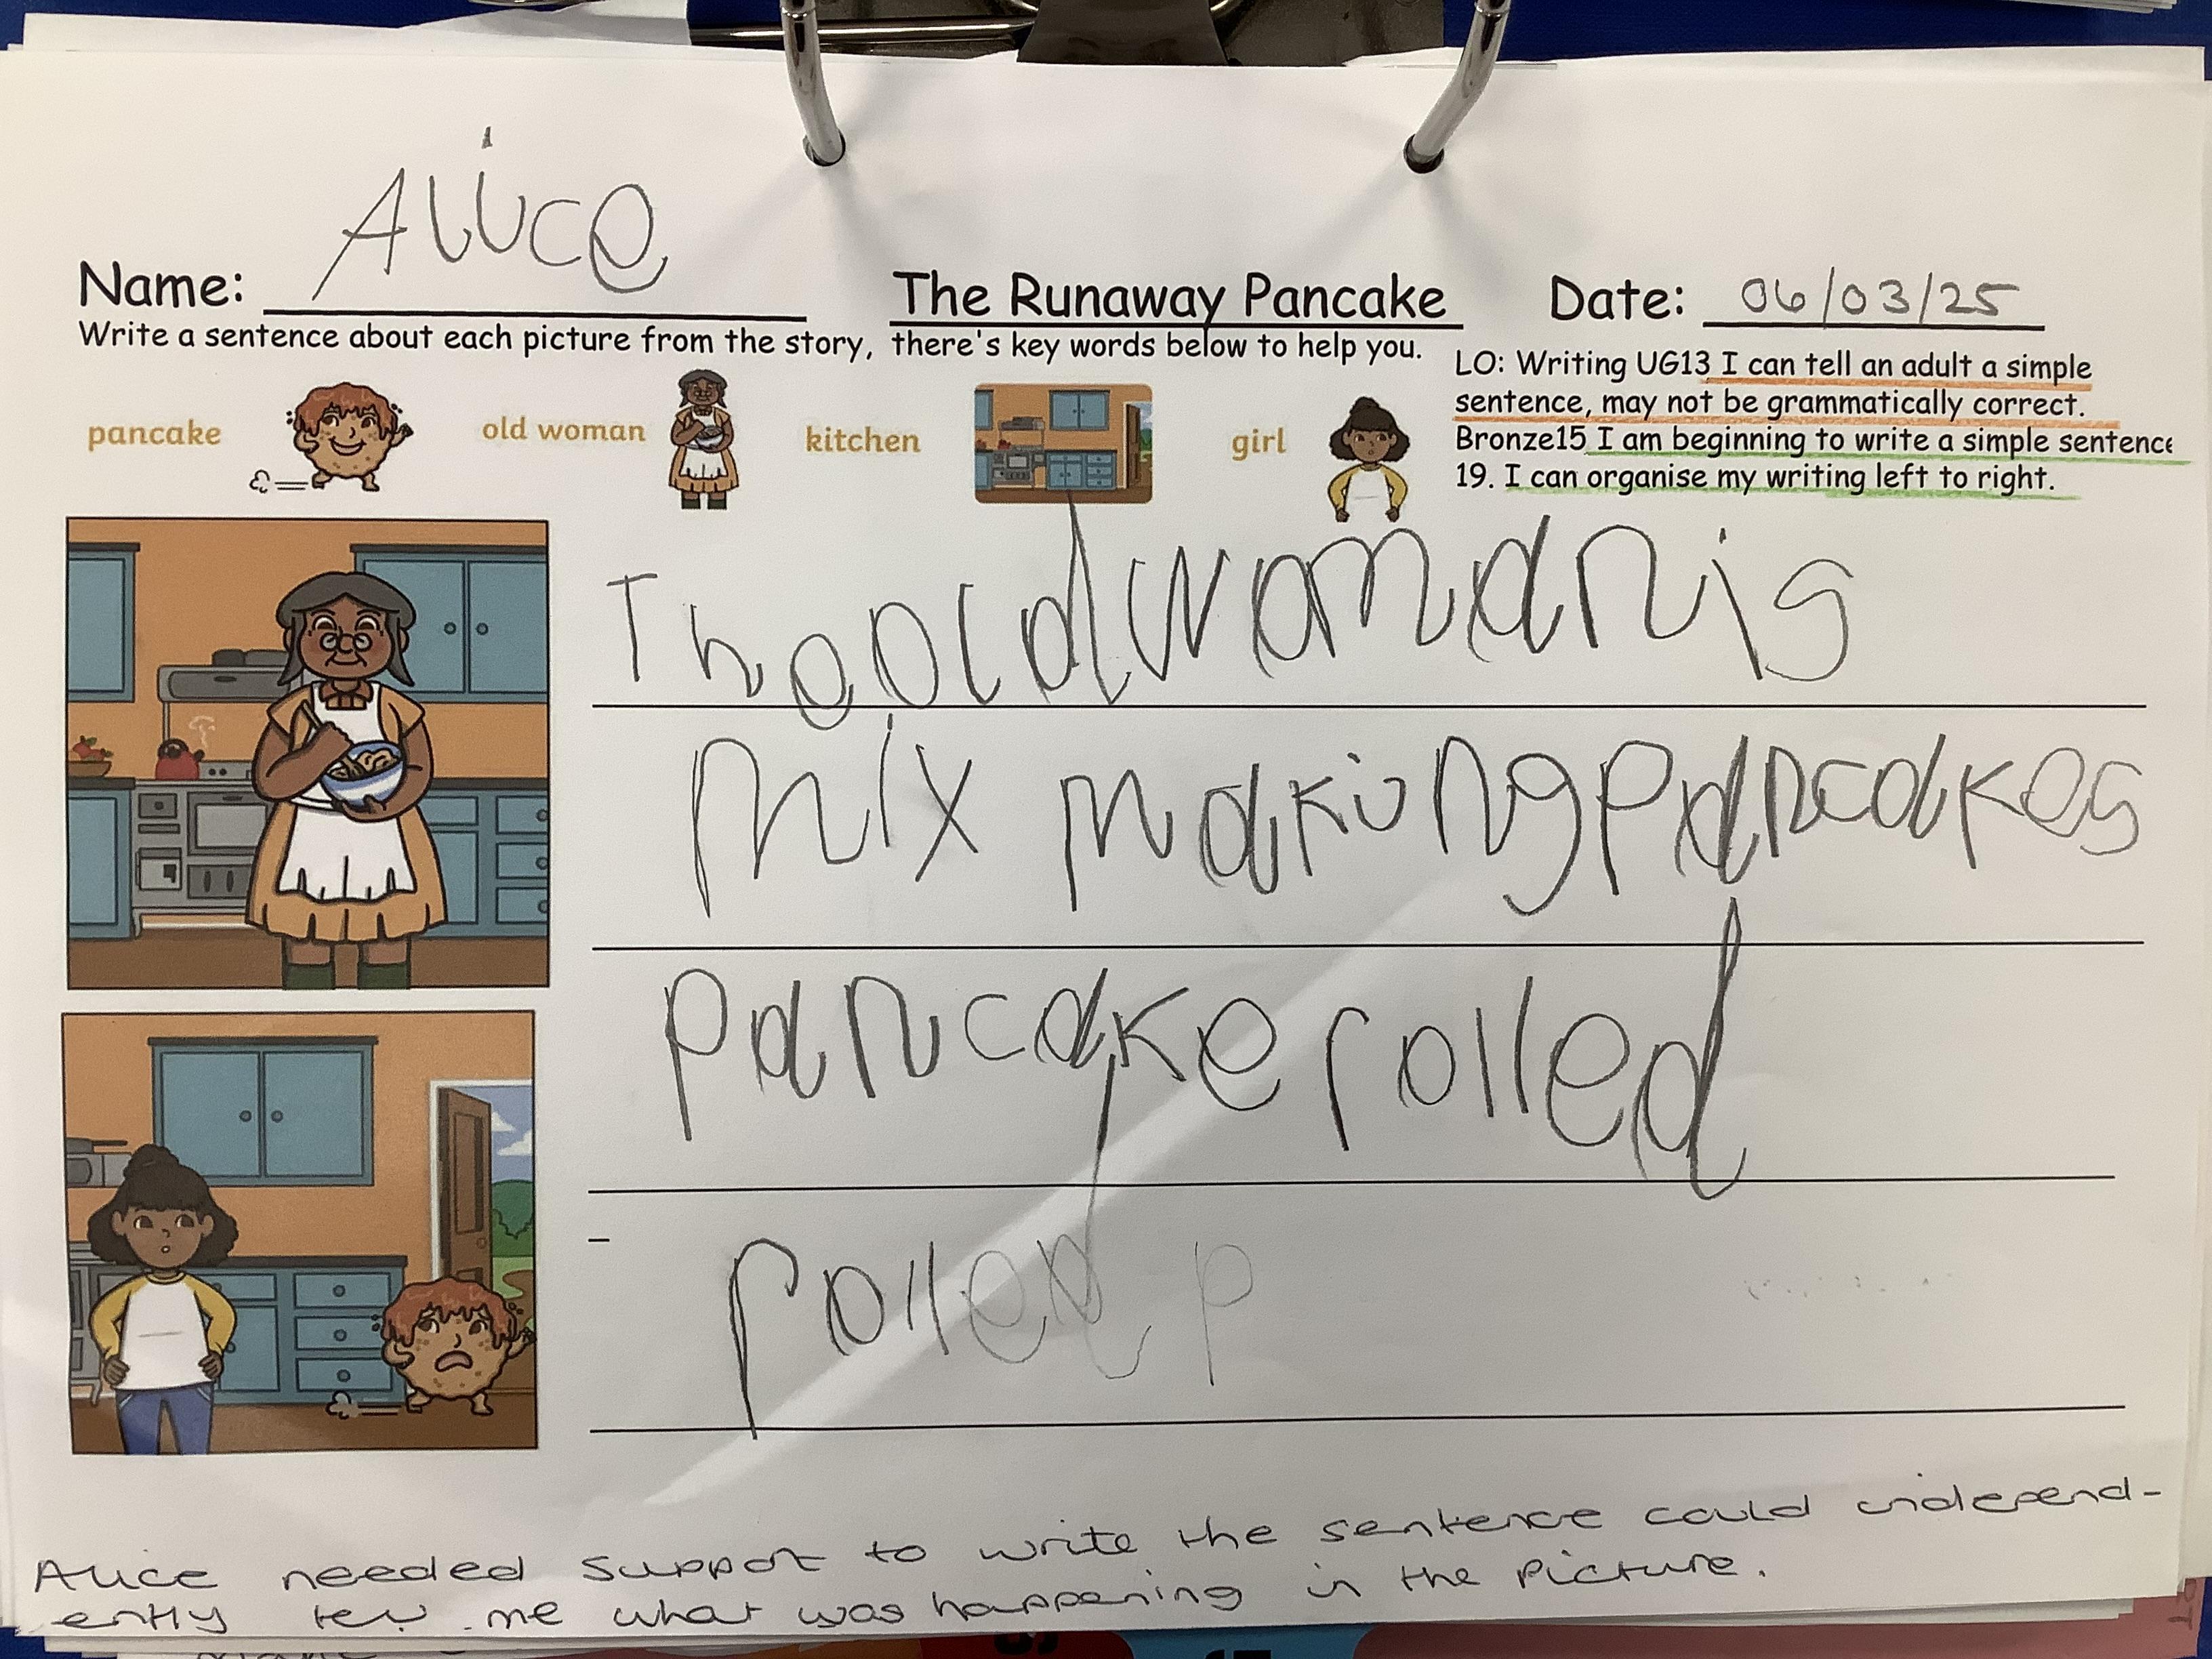 Alice
Name:
The Runaway Pancake
Date: 06/03/25
Write a sentence about each picture from the story, there's key words below to help you.
LO: Writing UG13 I can tell an adult a simple
sentence, may not be grammatically correct.
Bronze15 I am beginning to write a simple sentence
19. I can organise my writing left to right.
pancake
old woman
kitchen
girl
The old woman is
mix making pancakes
pancake rolled
rolled p
Alice needed support to write the sentence could independ-
ently tell me what was happening in the picture.